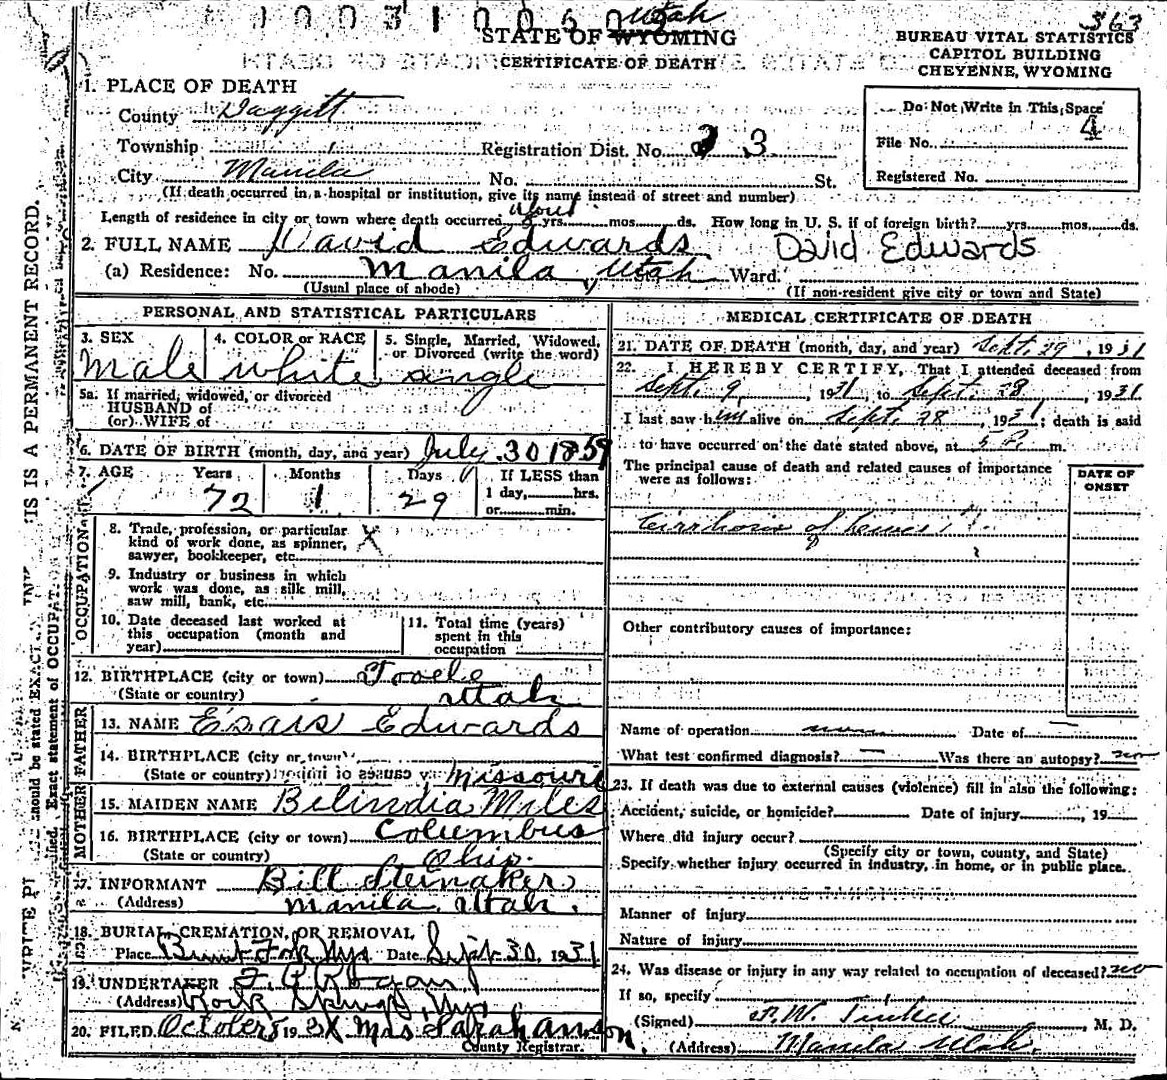 1003100602 Utah 363
STATE OF WYOMING
CERTIFICATE OF DEATH
BUREAU VITAL STATISTICS
CAPITOL BUILDING
CHEYENNE, WYOMING
1. PLACE OF DEATH
County Daggett
Township
Registration Dist. No. 3
City Manila No. St.
(If death occurred in a hospital or institution, give its name instead of street and number)
Do Not Write in This Space
4
File No.
Registered No.
Length of residence in city or town where death occurred about yrs. mos. ds. How long in U. S. if of foreign birth? yrs. mos. ds.
2. FULL NAME David Edwards David Edwards
(a) Residence: No. Manila, Utah Ward.
(Usual place of abode) (If non-resident give city or town and State)
PERSONAL AND STATISTICAL PARTICULARS
3. SEX Male
4. COLOR or RACE white
5. Single, Married, Widowed, or Divorced (write the word) single
5a. If married, widowed, or divorced
HUSBAND of
(or) WIFE of
6. DATE OF BIRTH (month, day, and year) July 30 1859
7. AGE Years Months Days If LESS than
72 1 29 1 day, hrs.
or min.
OCCUPATION
8. Trade, profession, or particular
kind of work done, as spinner,
sawyer, bookkeeper, etc. X
9. Industry or business in which
work was done, as silk mill,
saw mill, bank, etc.
10. Date deceased last worked at
this occupation (month and
year)
11. Total time (years)
spent in this
occupation
12. BIRTHPLACE (city or town) Tooele
(State or country) Utah
FATHER
13. NAME Esais Edwards
14. BIRTHPLACE (city or town)
(State or country) Missouri
MOTHER
15. MAIDEN NAME Belindia Miles
16. BIRTHPLACE (city or town) Columbus
(State or country) Ohio.
17. INFORMANT Bill Steinaker
(Address) Manila, Utah.
18. BURIAL, CREMATION, OR REMOVAL
Place Burnt Fork Wyo Date Sept. 30, 1931
19. UNDERTAKER
(Address) Rock Springs, Wyo
20. FILED October 5 193 Mrs Sarah
County Registrar.
MEDICAL CERTIFICATE OF DEATH
21. DATE OF DEATH (month, day, and year) Sept. 29, 1931
22. I HEREBY CERTIFY, That I attended deceased from
Sept. 9, 1931, to Sept. 28, 1931
I last saw him alive on Sept. 28, 1931; death is said
to have occurred on the date stated above, at 5 P. m.
The principal cause of death and related causes of importance
were as follows:
DATE OF
ONSET
Cirrhosis of
Other contributory causes of importance:
Name of operation none Date of —
What test confirmed diagnosis? — Was there an autopsy? no
23. If death was due to external causes (violence) fill in also the following:
Accident, suicide, or homicide? Date of injury , 19
Where did injury occur?
(Specify city or town, county, and State)
Specify whether injury occurred in industry, in home, or in public place.
Manner of injury
Nature of injury
24. Was disease or injury in any way related to occupation of deceased? no
If so, specify
(Signed) Tinker, M. D.
(Address) Manila Utah.
IS A PERMANENT RECORD.
should be stated EXACT
Exact statement of OCCUPAT